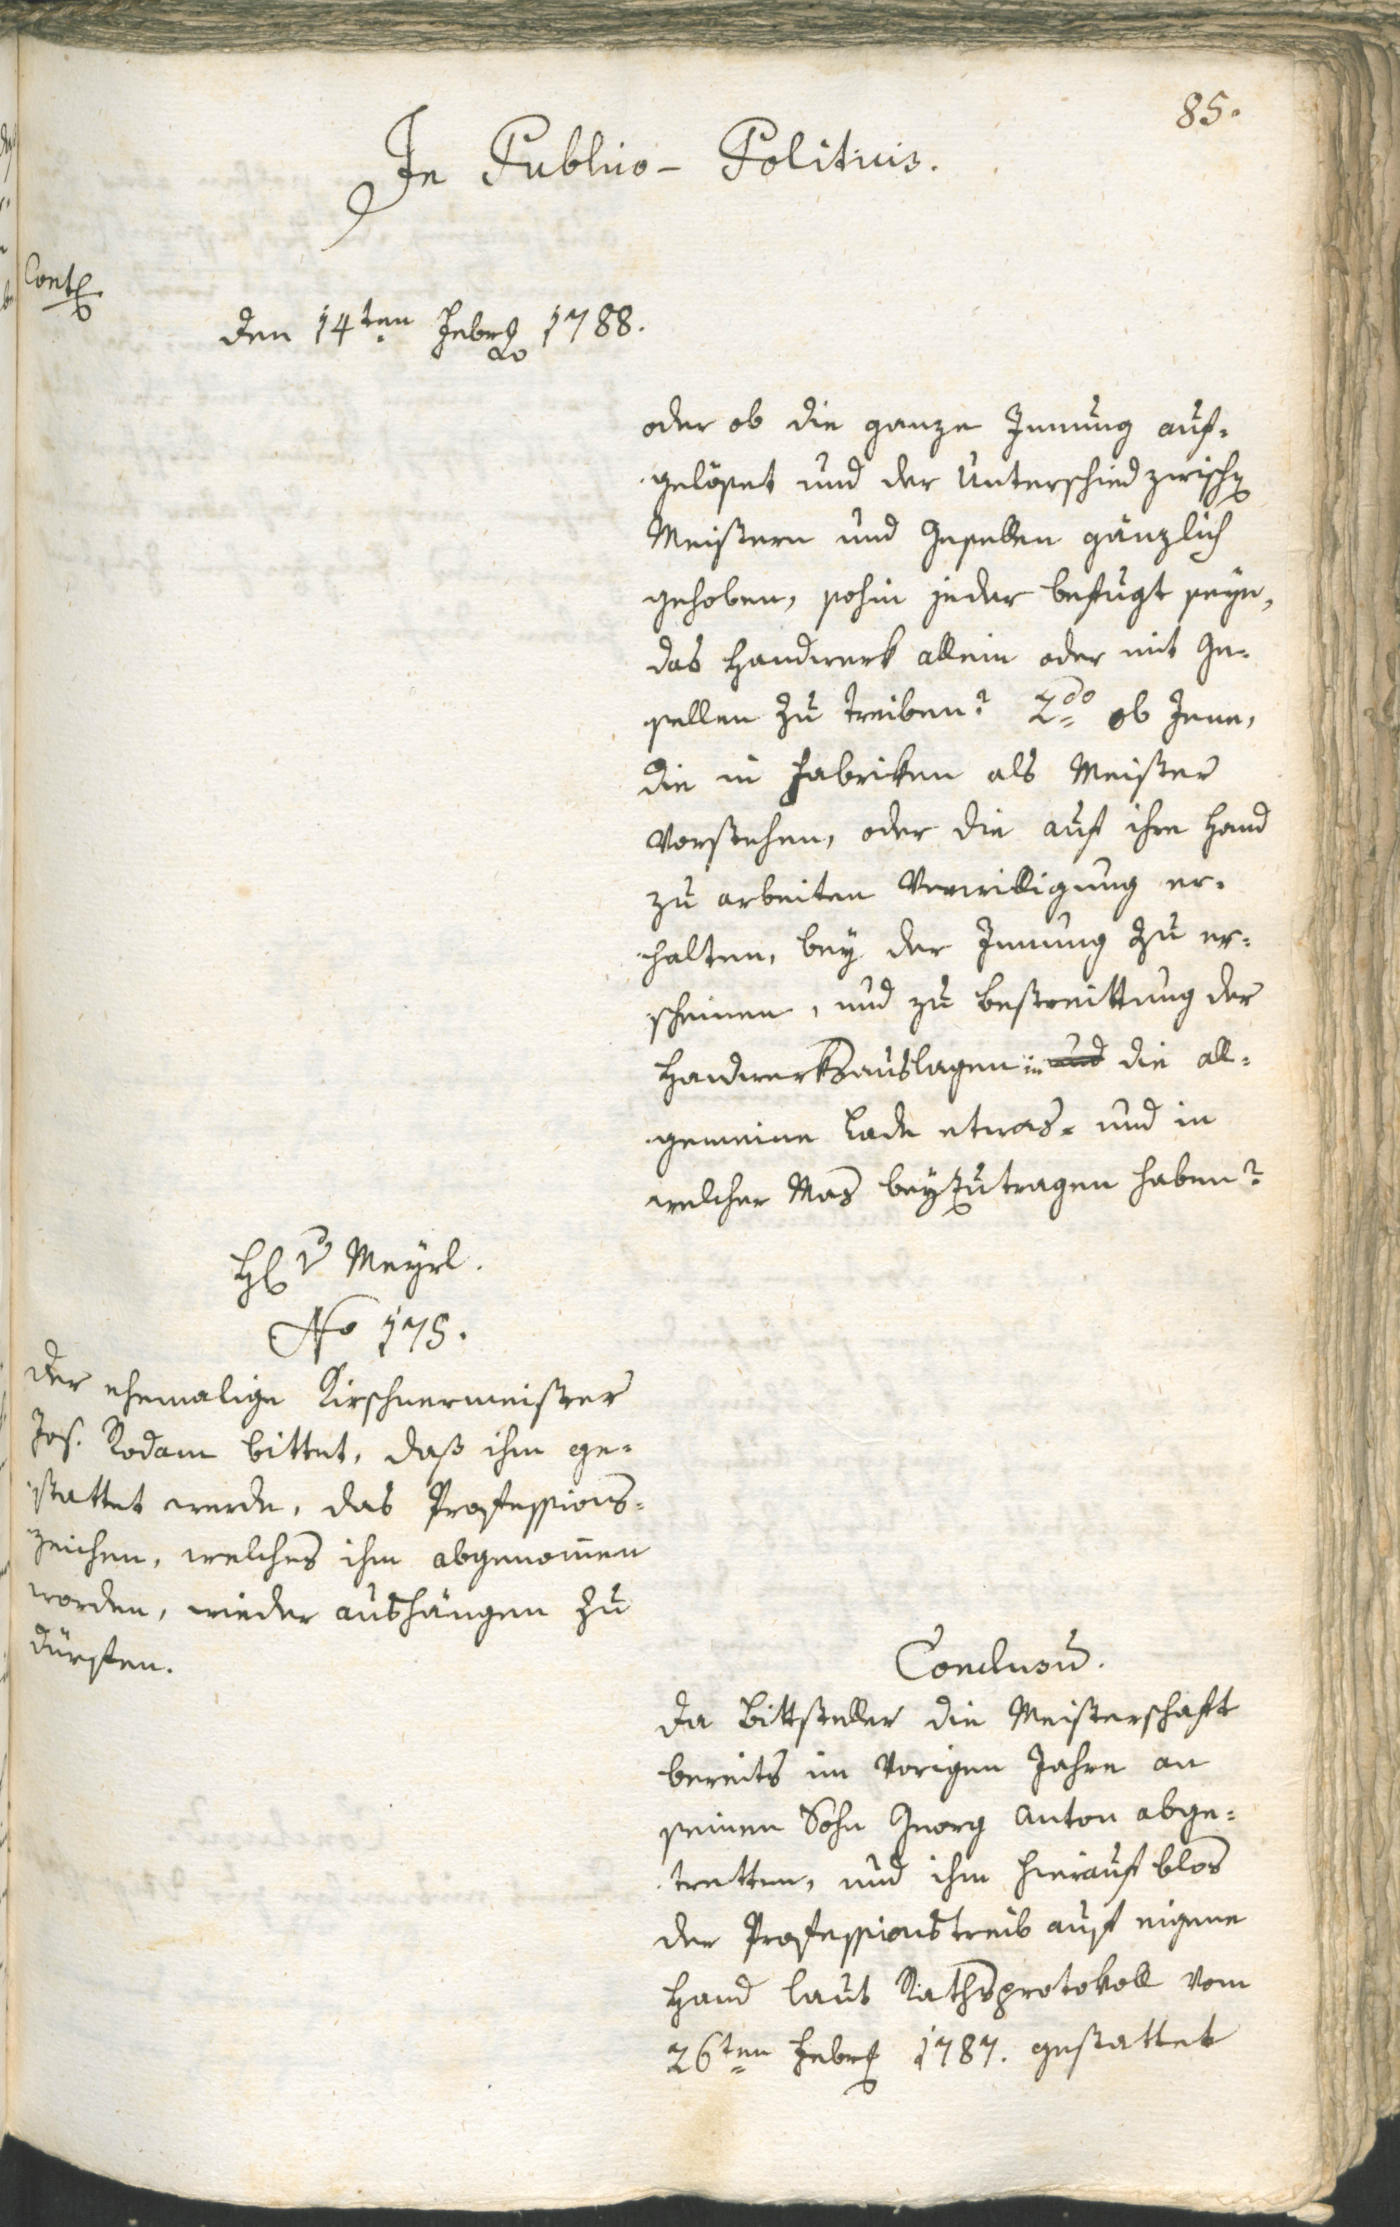 85.
In Publico-Politicis.
Cont
den 14ten Febr 1788.
oder ob die ganze Innung auf-
gelöset und der Unterschied zwisch
Meistern und Gesellen gänzlich
gehoben, sohin jeder befugt seyn,
das Handwerk allein oder mit Ge-
sellen zu treiben? 2do ob Jene,
die in Fabriken als Meister
vorstehen, oder die auf ihre Hand
zu arbeiten Verwilligung er-
halten, bey der Innung zu er-
scheinen, und zu bestreittung der
Handwerksauslagen in und die all-
gemeine Lade etwas- und in
welcher Mas beyzutragen haben?
H v Meyrl.
No 175.
Der ehemalige Kirschnermeister
Jos. Rodam bittet, daß ihm ge-
stattet werde, das Professions-
zeichen, welches ihm abgenom̄en
worden, wieder aushängen zu
dürfen.
Conclusū.
Da Bittsteller die Meisterschaft
bereits im vorigen Jahre an
seinen Sohn Georg Anton abge-
tretten, und ihm hierauf blos
der Professionstrieb auf eigene
Hand laut Rathsprotokoll vom
26ten Febr 1787. gestattet